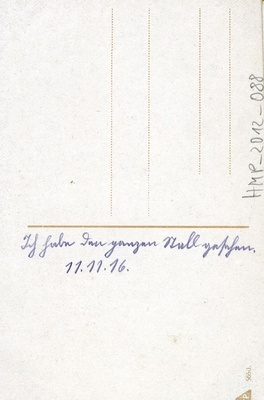 Ich habe den ganzen Stall gesehen.
11.11.16.
HMP_2012_088